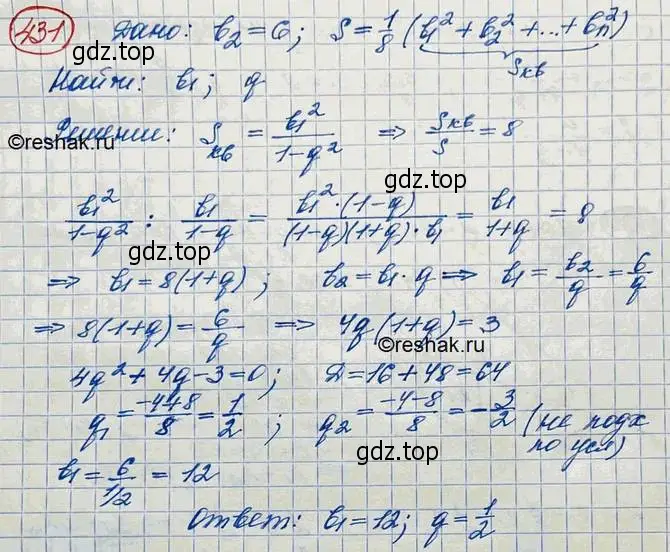 431 Дано: b₂ = 6; S = 1/8 (b₁² + b₂² + ... + bₙ²)
Sкв
gdz.top
Найти: b₁; q
©reshak.ru
Решение: Sкв = b₁²/(1-q²) ⇒ Sкв/S = 8
gdz.top
b₁²/(1-q²) : b₁/(1-q) = b₁²·(1-q)/((1-q)(1+q)·b₁) = b₁/(1+q) = 8
gdz.top
⇒ b₁ = 8(1+q); b₂ = b₁·q ⇒ b₁ = b₂/q = 6/q
⇒ 8(1+q) = 6/q ⇒ 4q(1+q) = 3
©reshak.ru
4q² + 4q - 3 = 0; D = 16 + 48 = 64
q₁ = (-4+8)/8 = 1/2; q₂ = (-4-8)/8 = -3/2 (не подх
по усл)
gdz.top
b₁ = 6/1/2 = 12
gdz.top
Ответ: b₁ = 12; q = 1/2